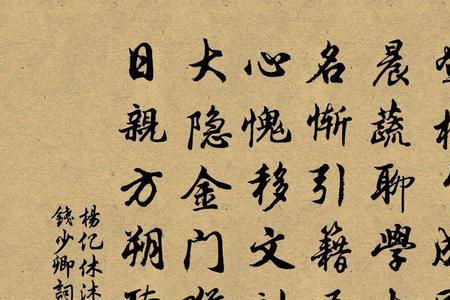 晨蔬聊學
名惭引籍
心愧移文
大隐金门
日親方朔
楊亿休沐
錢少卿詞